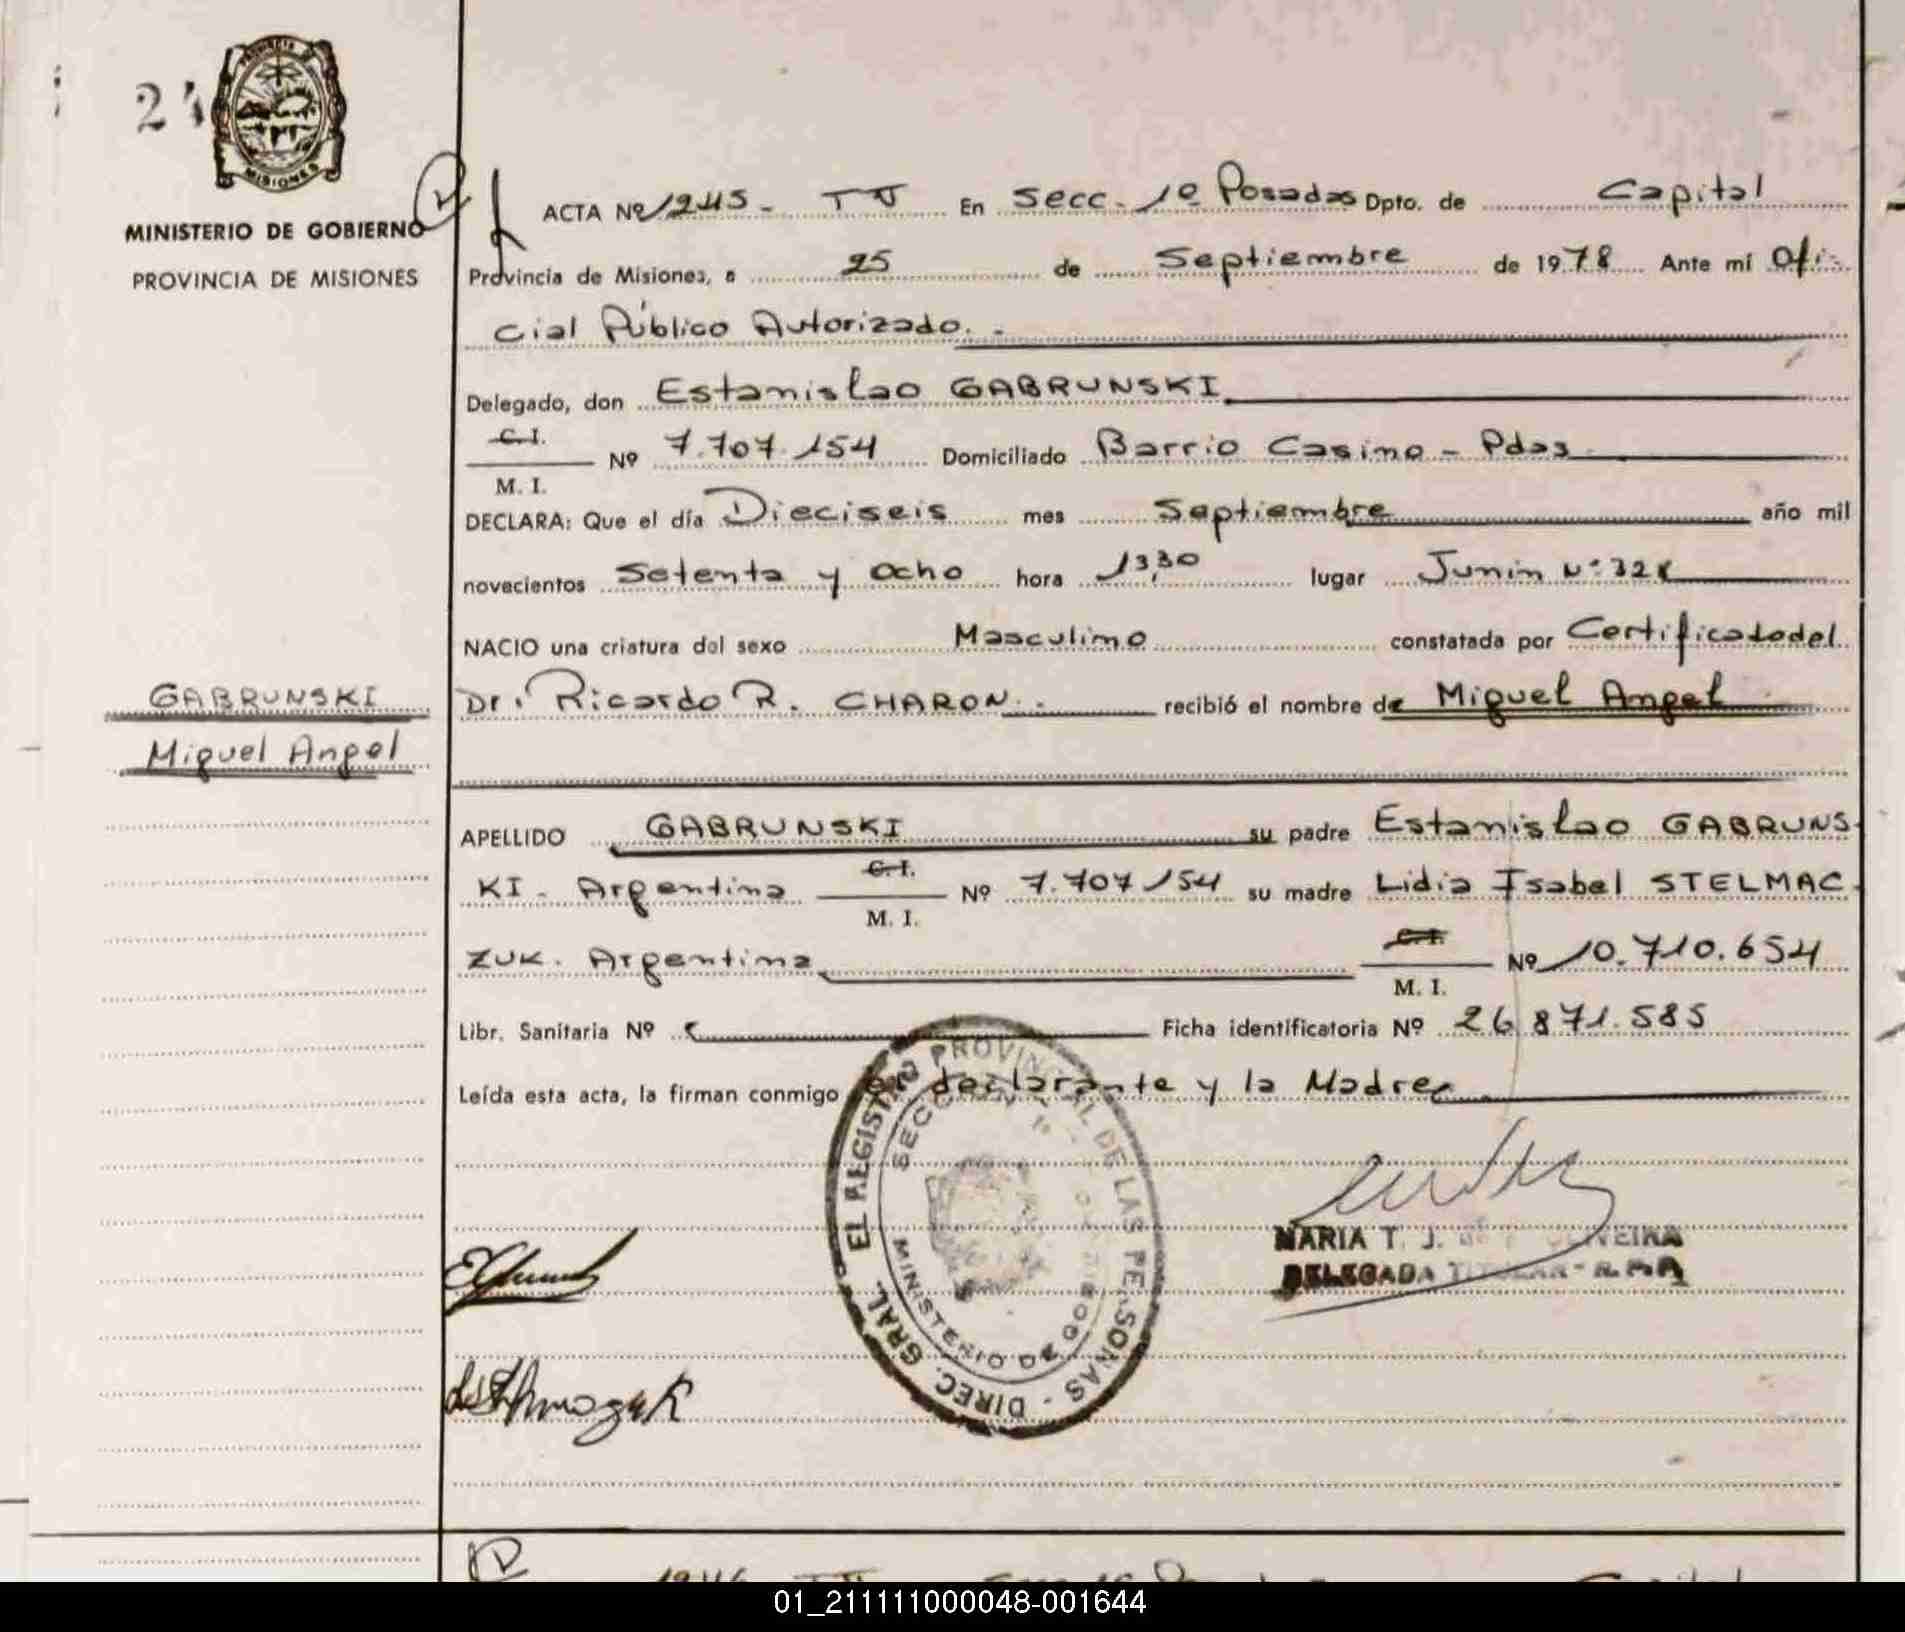 24
PROVINCIA DE
MISIONES
MINISTERIO DE GOBIERNO
PROVINCIA DE MISIONES
ACTA Nº 1245 - T V En Secc. 1º Posadas Dpto. de Capital
Provincia de Misiones, a 25 de Septiembre de 1978 Ante mí Ofi-
cial Público Autorizado. -
Delegado, don Estanislao GABRUNSKI
C. I.
Nº 7.707.154 Domiciliado Barrio Casino - Pdas
M. I.
DECLARA: Que el día Dieciseis mes Septiembre año mil
novecientos Setenta y ocho hora 13,30 lugar Junin Nº 328
NACIO una criatura del sexo Masculino constatada por Certificado del
Dr. Ricardo R. CHARON. - recibió el nombre de Miguel Angel
GABRUNSKI
Miguel Angel
APELLIDO GABRUNSKI su padre Estanislao GABRUNS-
KI - Argentina C. I. Nº 7.707.154 su madre Lidia Isabel STELMAC-
M. I.
ZUK. Argentina C. I. Nº 10.710.654
M. I.
Libr. Sanitaria Nº Ficha identificatoria Nº 26.871.585
Leída esta acta, la firman conmigo el declarante y la Madre
DIREC. GRAL. EL REGISTRO PROVINCIAL DE LAS PERSONAS
SECCION 1º
MINISTERIO DE GOBIERNO
MARIA T. J. DE OLIVEIRA
DELEGADA TITULAR
1246 Capital
01_211111000048-001644